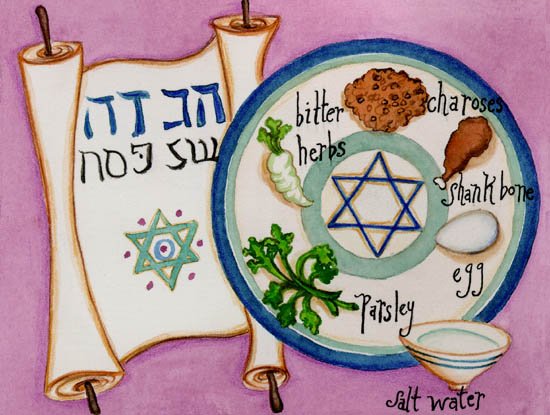 הגדה
של פסח
bitter
herbs
charoses
shankbone
egg
Parsley
salt water